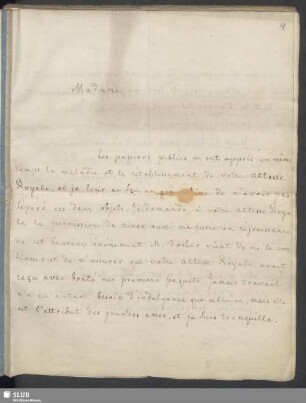 4
Madame
Les papiers publics m'ont appris en même
temps la maladie et le rétablissement de votre Altesse
Royale, et je leur ai sçu un gré infini de n'avoir pas
séparé ces deux objets. Je demande à votre Altesse Roya
la permission de dire aussi ma en réjouissance
de cet heureux événement. M. vient de me le con
firmer et de m'assurer que votre Altesse Royale avait
reçu avec bonté nos premiers paquets. Jamais travail
n'a eu autant besoin d'indulgence que celui-ci, mais elle
est l'attribut des grandes ames, et je suis tranquille.
SLUB